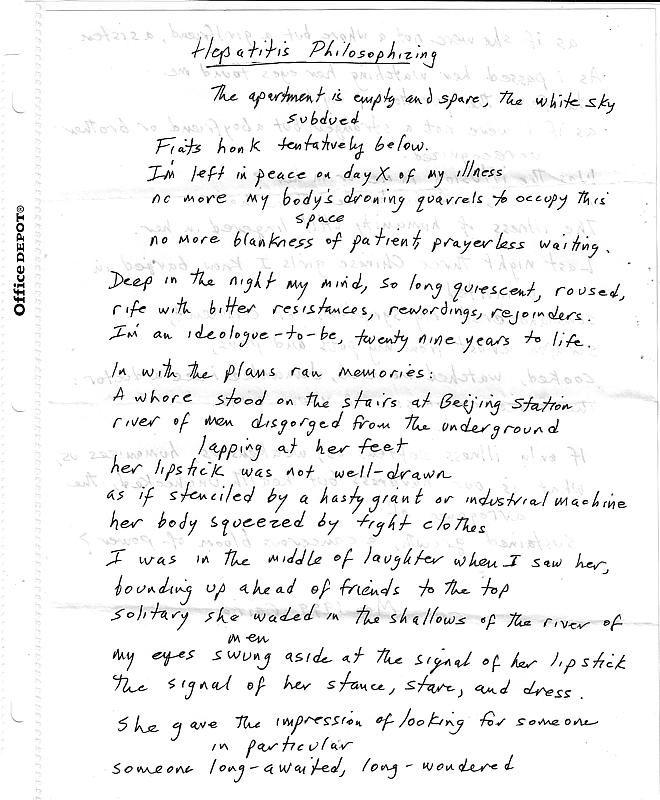 Hepatitis Philosophizing
The apartment is empty and spare, the white sky
subdued
Fiats honk tentatively below.
I'm left in peace on day X of my illness
no more my body's droning quarrels to occupy this
space
no more blankness of patient, prayerless waiting.
Deep in the night my mind, so long quiescent, roused,
rife with bitter resistances, rewordings, rejoinders.
I'm an ideologue-to-be, twenty nine years to life.
In with the plans ran memories:
A whore stood on the stairs at Beijing Station
river of men disgorged from the underground
lapping at her feet
her lipstick was not well-drawn
as if stenciled by a hasty giant or industrial machine
her body squeezed by tight clothes
I was in the middle of laughter when I saw her,
bounding up ahead of friends to the top
solitary she waded in the shallows of the river of
men
my eyes swung aside at the signal of her lipstick
the signal of her stance, stare, and dress.
She gave the impression of looking for someone
in particular
someone long-awaited, long-wondered
Office DEPOT®